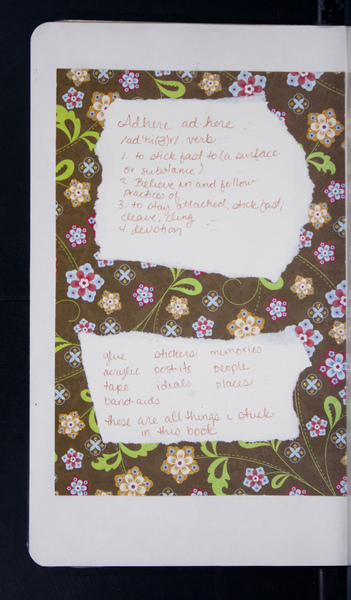 Adhere ad·here
/ad'hi(ə)r/ verb
1. to stick fast to (a surface
or substance)
2. Believe in and follow
practices of
3. to stay attached; stick fast;
cleave; cling
4. devotion
glue stickers memories
acrylic post-its people
tape ideals places
band-aids
these are all things i stuck
in this book